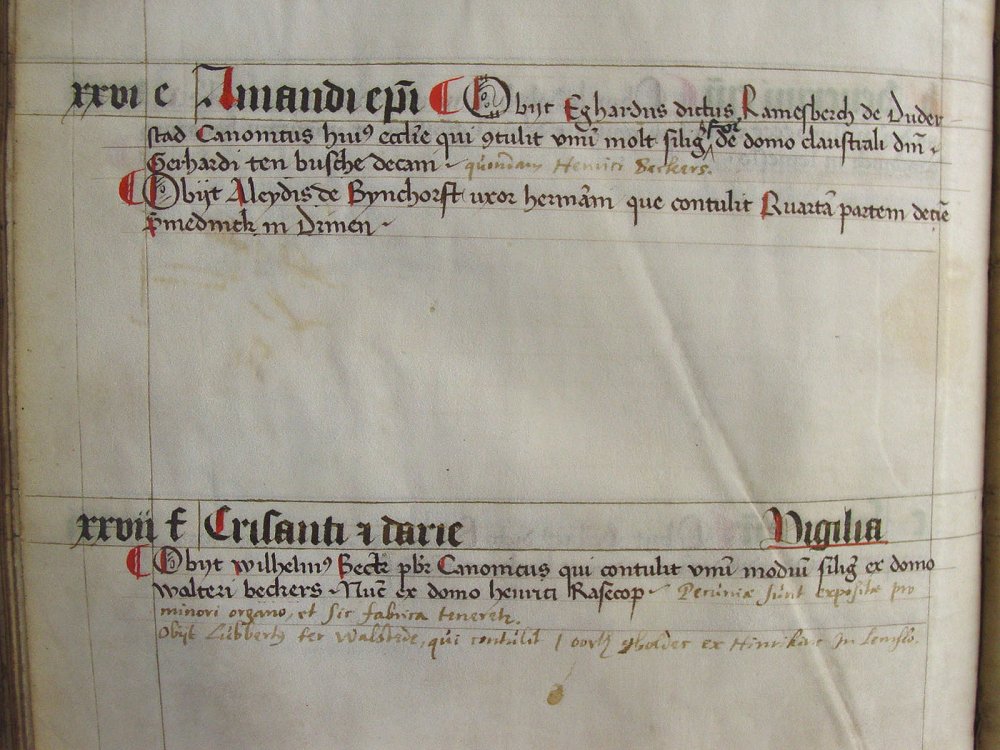 xxvi e Amandi ep̄i Obijt Eghardus dictus Ramesberch de Duder
stad Canonicus hui⁹ eccl̄ie qui ꝯtulit vnū molt siliḡ de domo claustrali dn̄i
Gerhardi ten busche decani quondam Henrici Beckers.
Obijt Aleydis de Bynchorst uxor hermāni que contulit Quartā partem decīe
in Drinen
xxvij f Crisanti ⁊ darie Vigilia
Obijt wilhelm⁹ Beck̄ pb̄r Canonicus qui contulit vnū modiū siliḡ ex domo
walteri beckers Nūc ex domo henrici Rasecop Pecuniæ sunt expositæ pro
minori organo, et sic fabrica teneretr.
Obijt Lubbert⁹ ter Walstede, qui contulit 1 ex Hinrikinc In